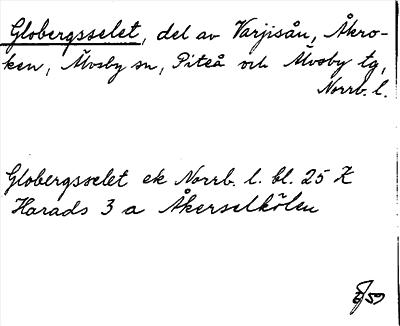 Globergsselet, del av Varjisån, Åkro-
ken, Älvsby sn, Piteå och Älvsby tg,
Norrb. l.
Globergsselet ek Norrb. l. bl. 25 K
Harads 3 a Åkerselkölen